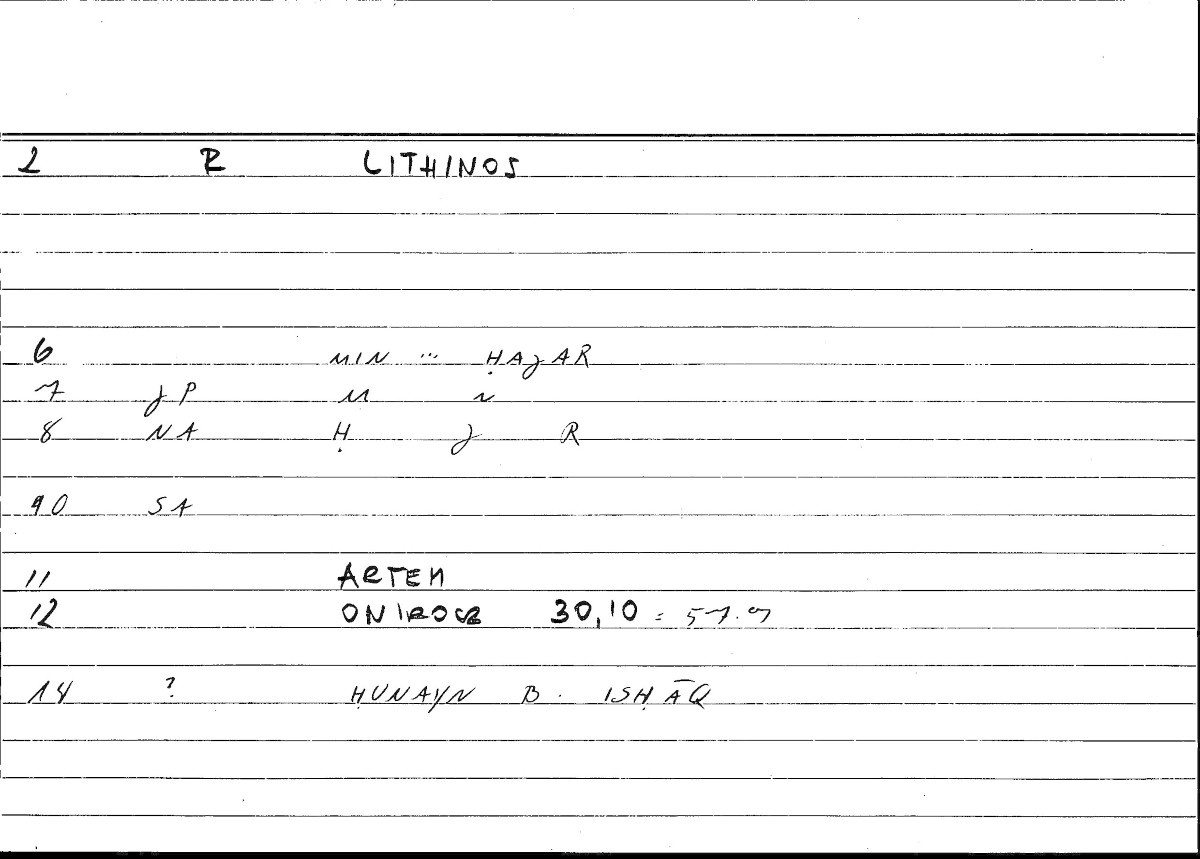 2 R LITHINOS
6 MIN ... ḤAJAR
7 JP M N
8 NA Ḥ J R
10 SA
11 ARTEM
12 ONIROCR 30,10 = 57.9
14 ? ḤUNAYN B. ISḤĀQ